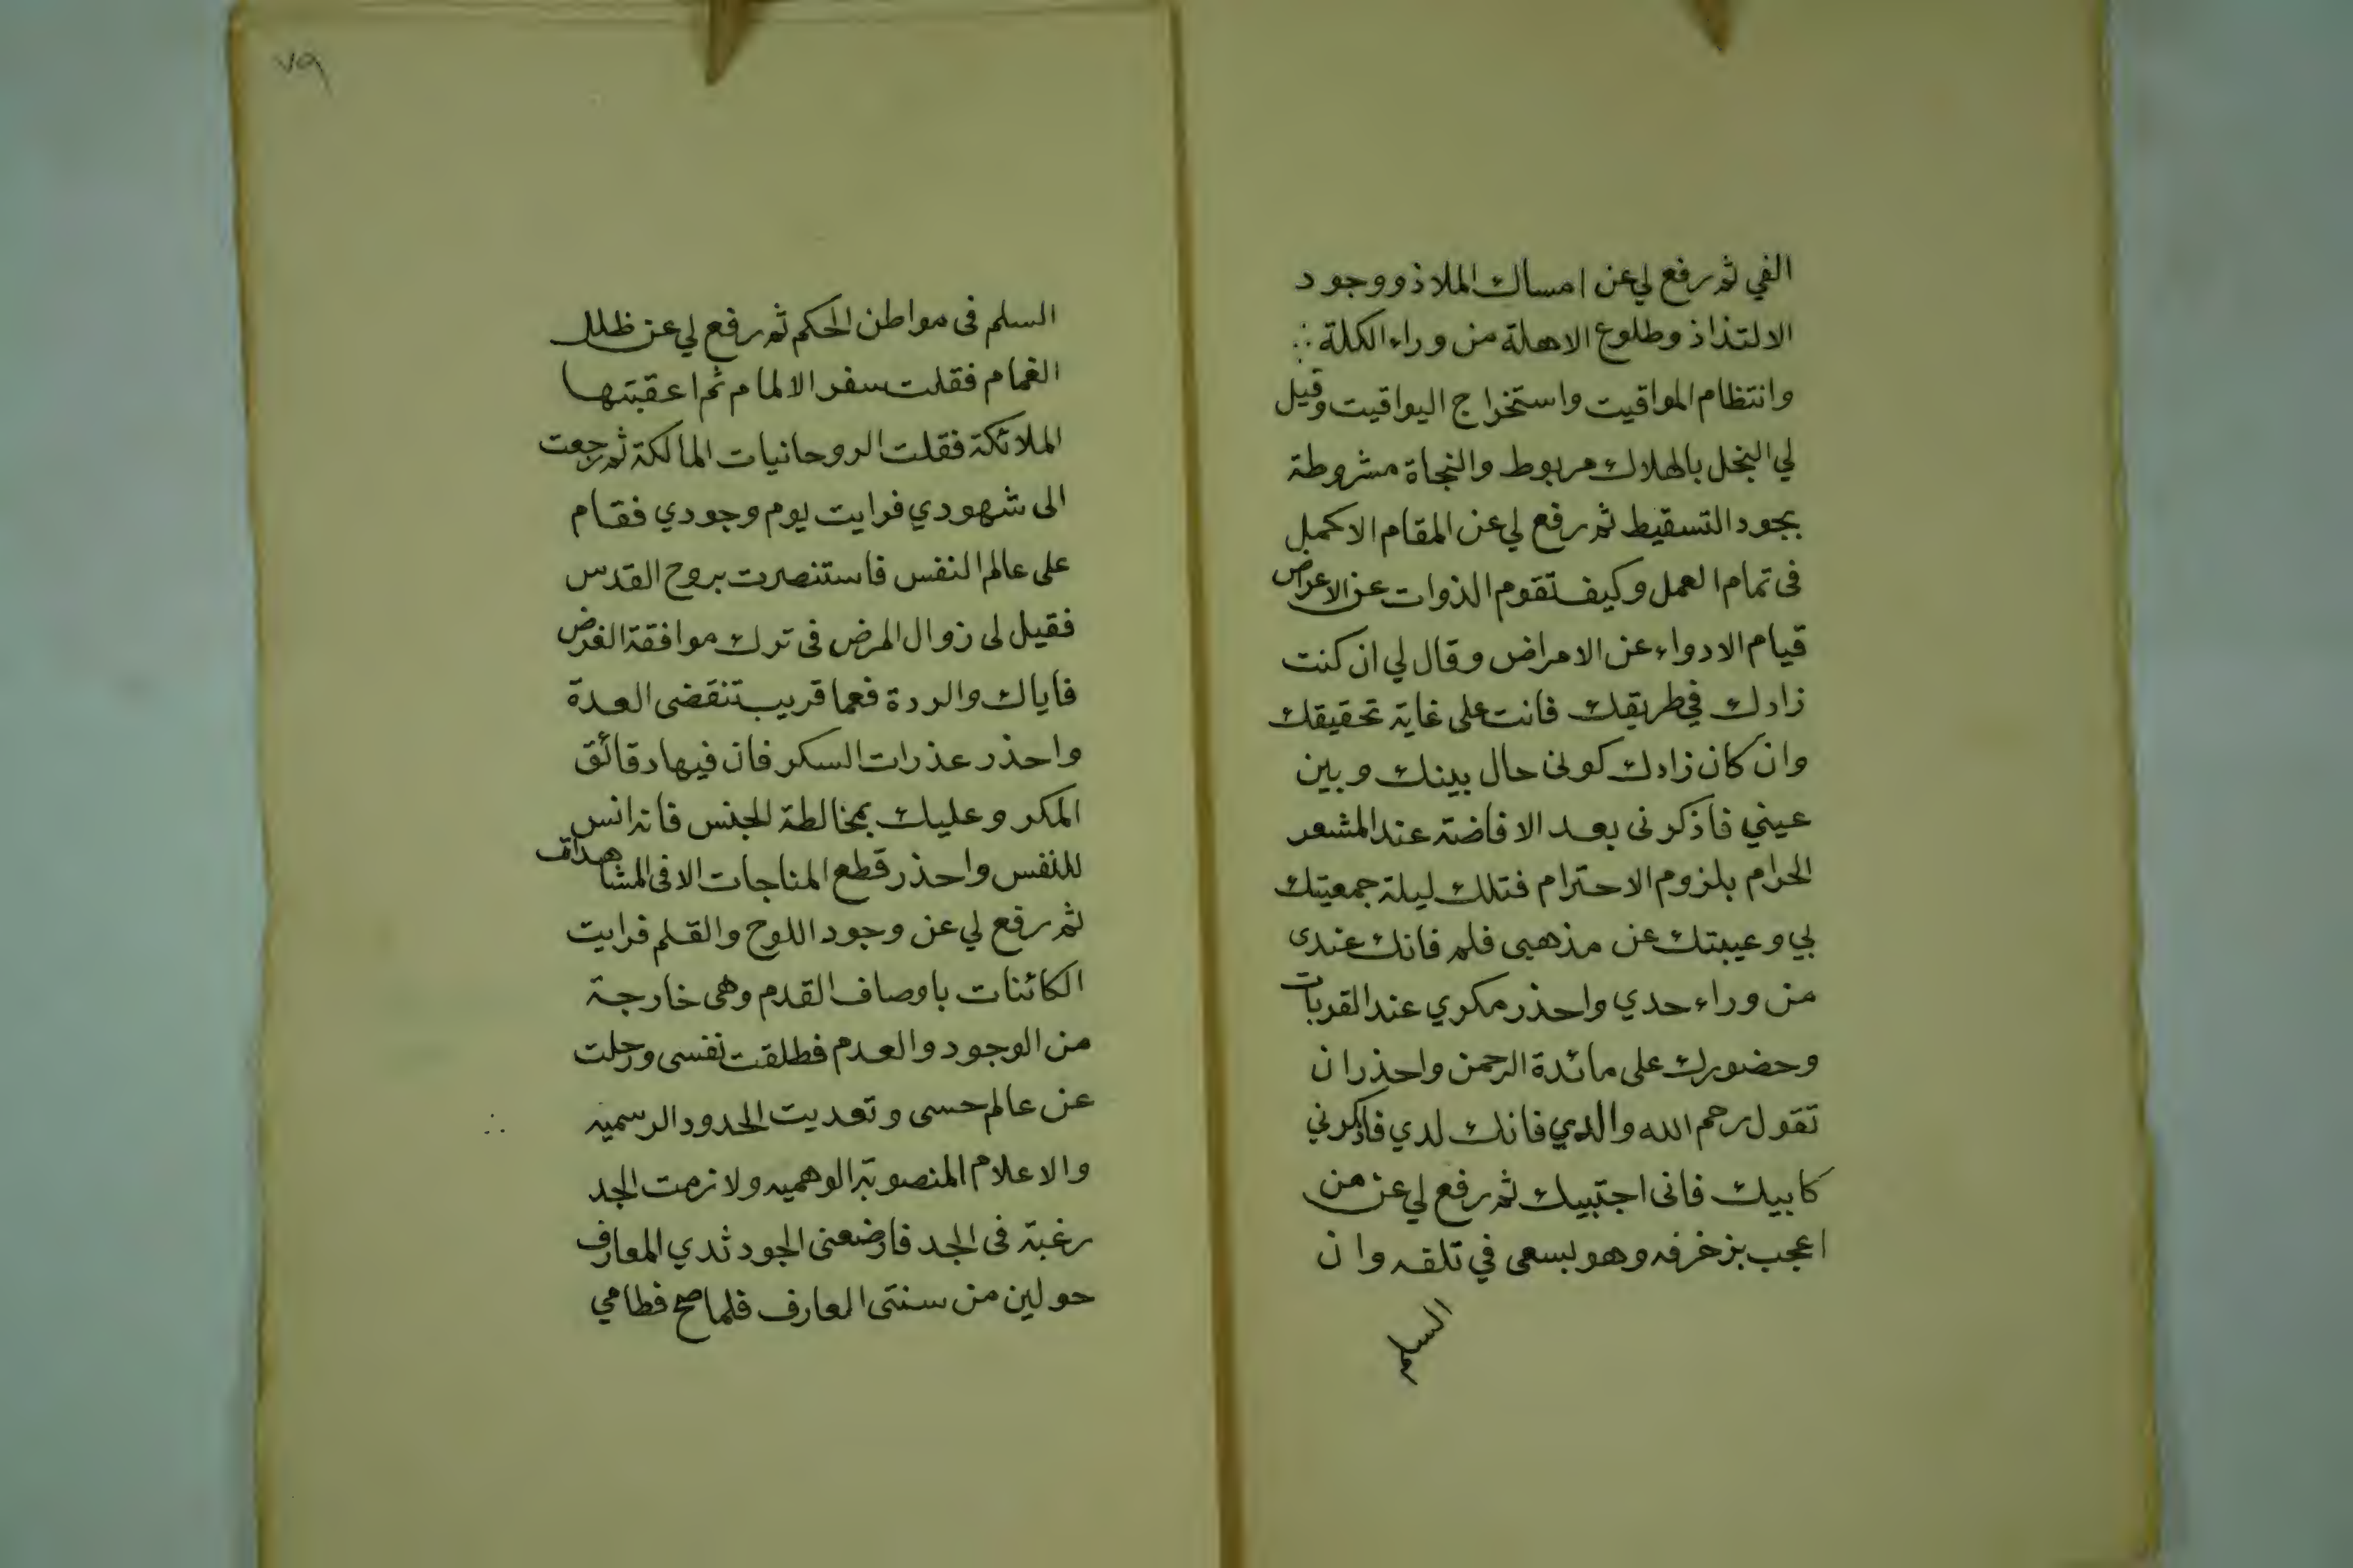 الفي ثم رفع لي عن امساك الملاذ ووجود
الالتذاذ وطلوع الاهلة من وراء الكلة
وانتظام المواقيت واستخراج اليواقيت وقيل
لي البخل بالهلاك مربوط والنجاة مشروطة
بجود التسقيط ثم رفع لي عن المقام الاكمل
فى تمام العمل وكيف تقوم الذوات عن الاعراض
قيام الادواء عن الامراض وقال لي ان كنت
زادك في طريقك فانت على غاية تحقيقك
وان كان زادك كونى حال بينك وبين
عيني فاذكرنى بعد الافاضة عند المشعر
الحرام بلزوم الاحترام فتلك ليلة جمعيتك
بي وغيبتك عن مذهبى فلم فانك عندى
من وراء حدي واحذر مكري عند القربات
وحضورك على مائدة الرحمن واحذر ان
تقول رحم الله والدي فانك لدي فاذكرني
كابيك فانى اجتبيك ثم رفع لي عن من
اعجب بزخرفه وهو يسعى في تلفه وان
السلم
٧٩
السلم فى مواطن الحكم ثم رفع لي عن ظلل
الغمام فقلت سفر الالمام ثم اعقبتها
الملائكة فقلت الروحانيات المالكة ثم رجعت
الى شهودي فرايت يوم وجودي فقام
على عالم النفس فاستنصرت بروح القدس
فقيل لى زوال المرض فى ترك موافقة الغرض
فاياك والردة فعما قريب تنقضى العدة
واحذر عذرات السكر فان فيها دقائق
المكر وعليك بمخالطة الجنس فانه انس
للنفس واحذر قطع المناجات الا فى المشاهدات
ثم رفع لي عن وجود اللوح والقلم فرايت
الكائنات باوصاف القدم وهى خارجة
من الوجود والعدم فطلقت نفسى ورحلت
عن عالم حسى وتعديت الحدود الرسميه
والاعلام المنصوبة الوهميه ولازمت الجد
رغبة فى الجد فارضعنى الجود ثدي المعارف
حولين من سنتى العارف فلما صح فطامي